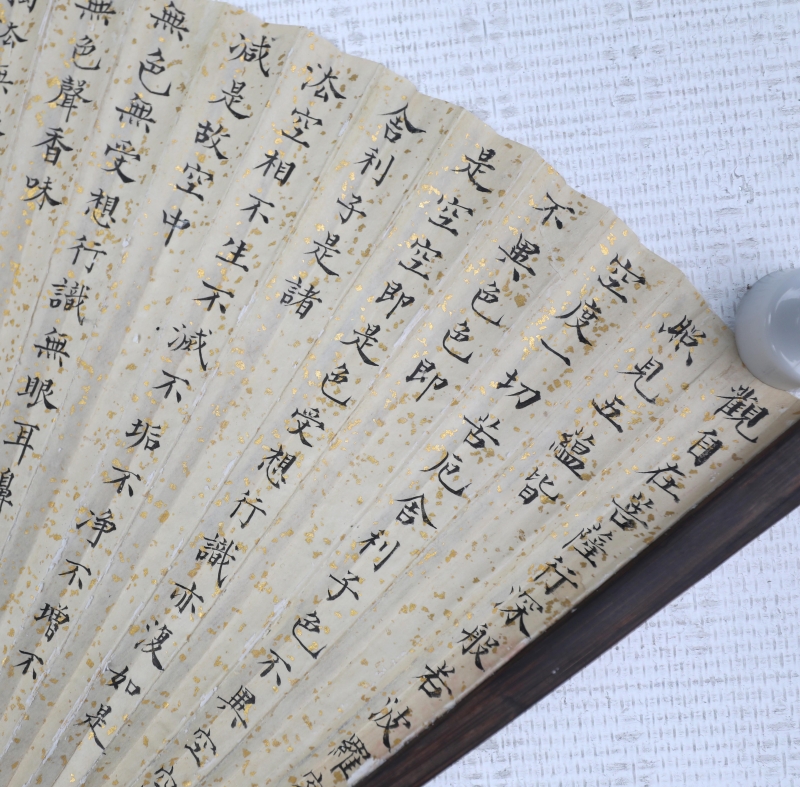 觀自在菩薩行深般若波羅
照見五蘊皆
空度一切苦厄舍利子色不異空空
不異色色即
是空空即是色受想行識亦復如是
舍利子是諸
法空相不生不滅不垢不淨不增不
減是故空中
無色無受想行識無眼耳鼻
無色聲香味
法無